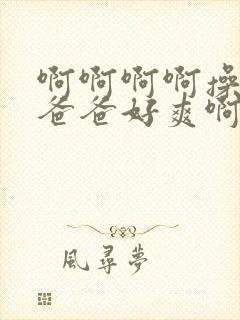 啊啊啊啊操
爸爸好爽啊
風尋夢